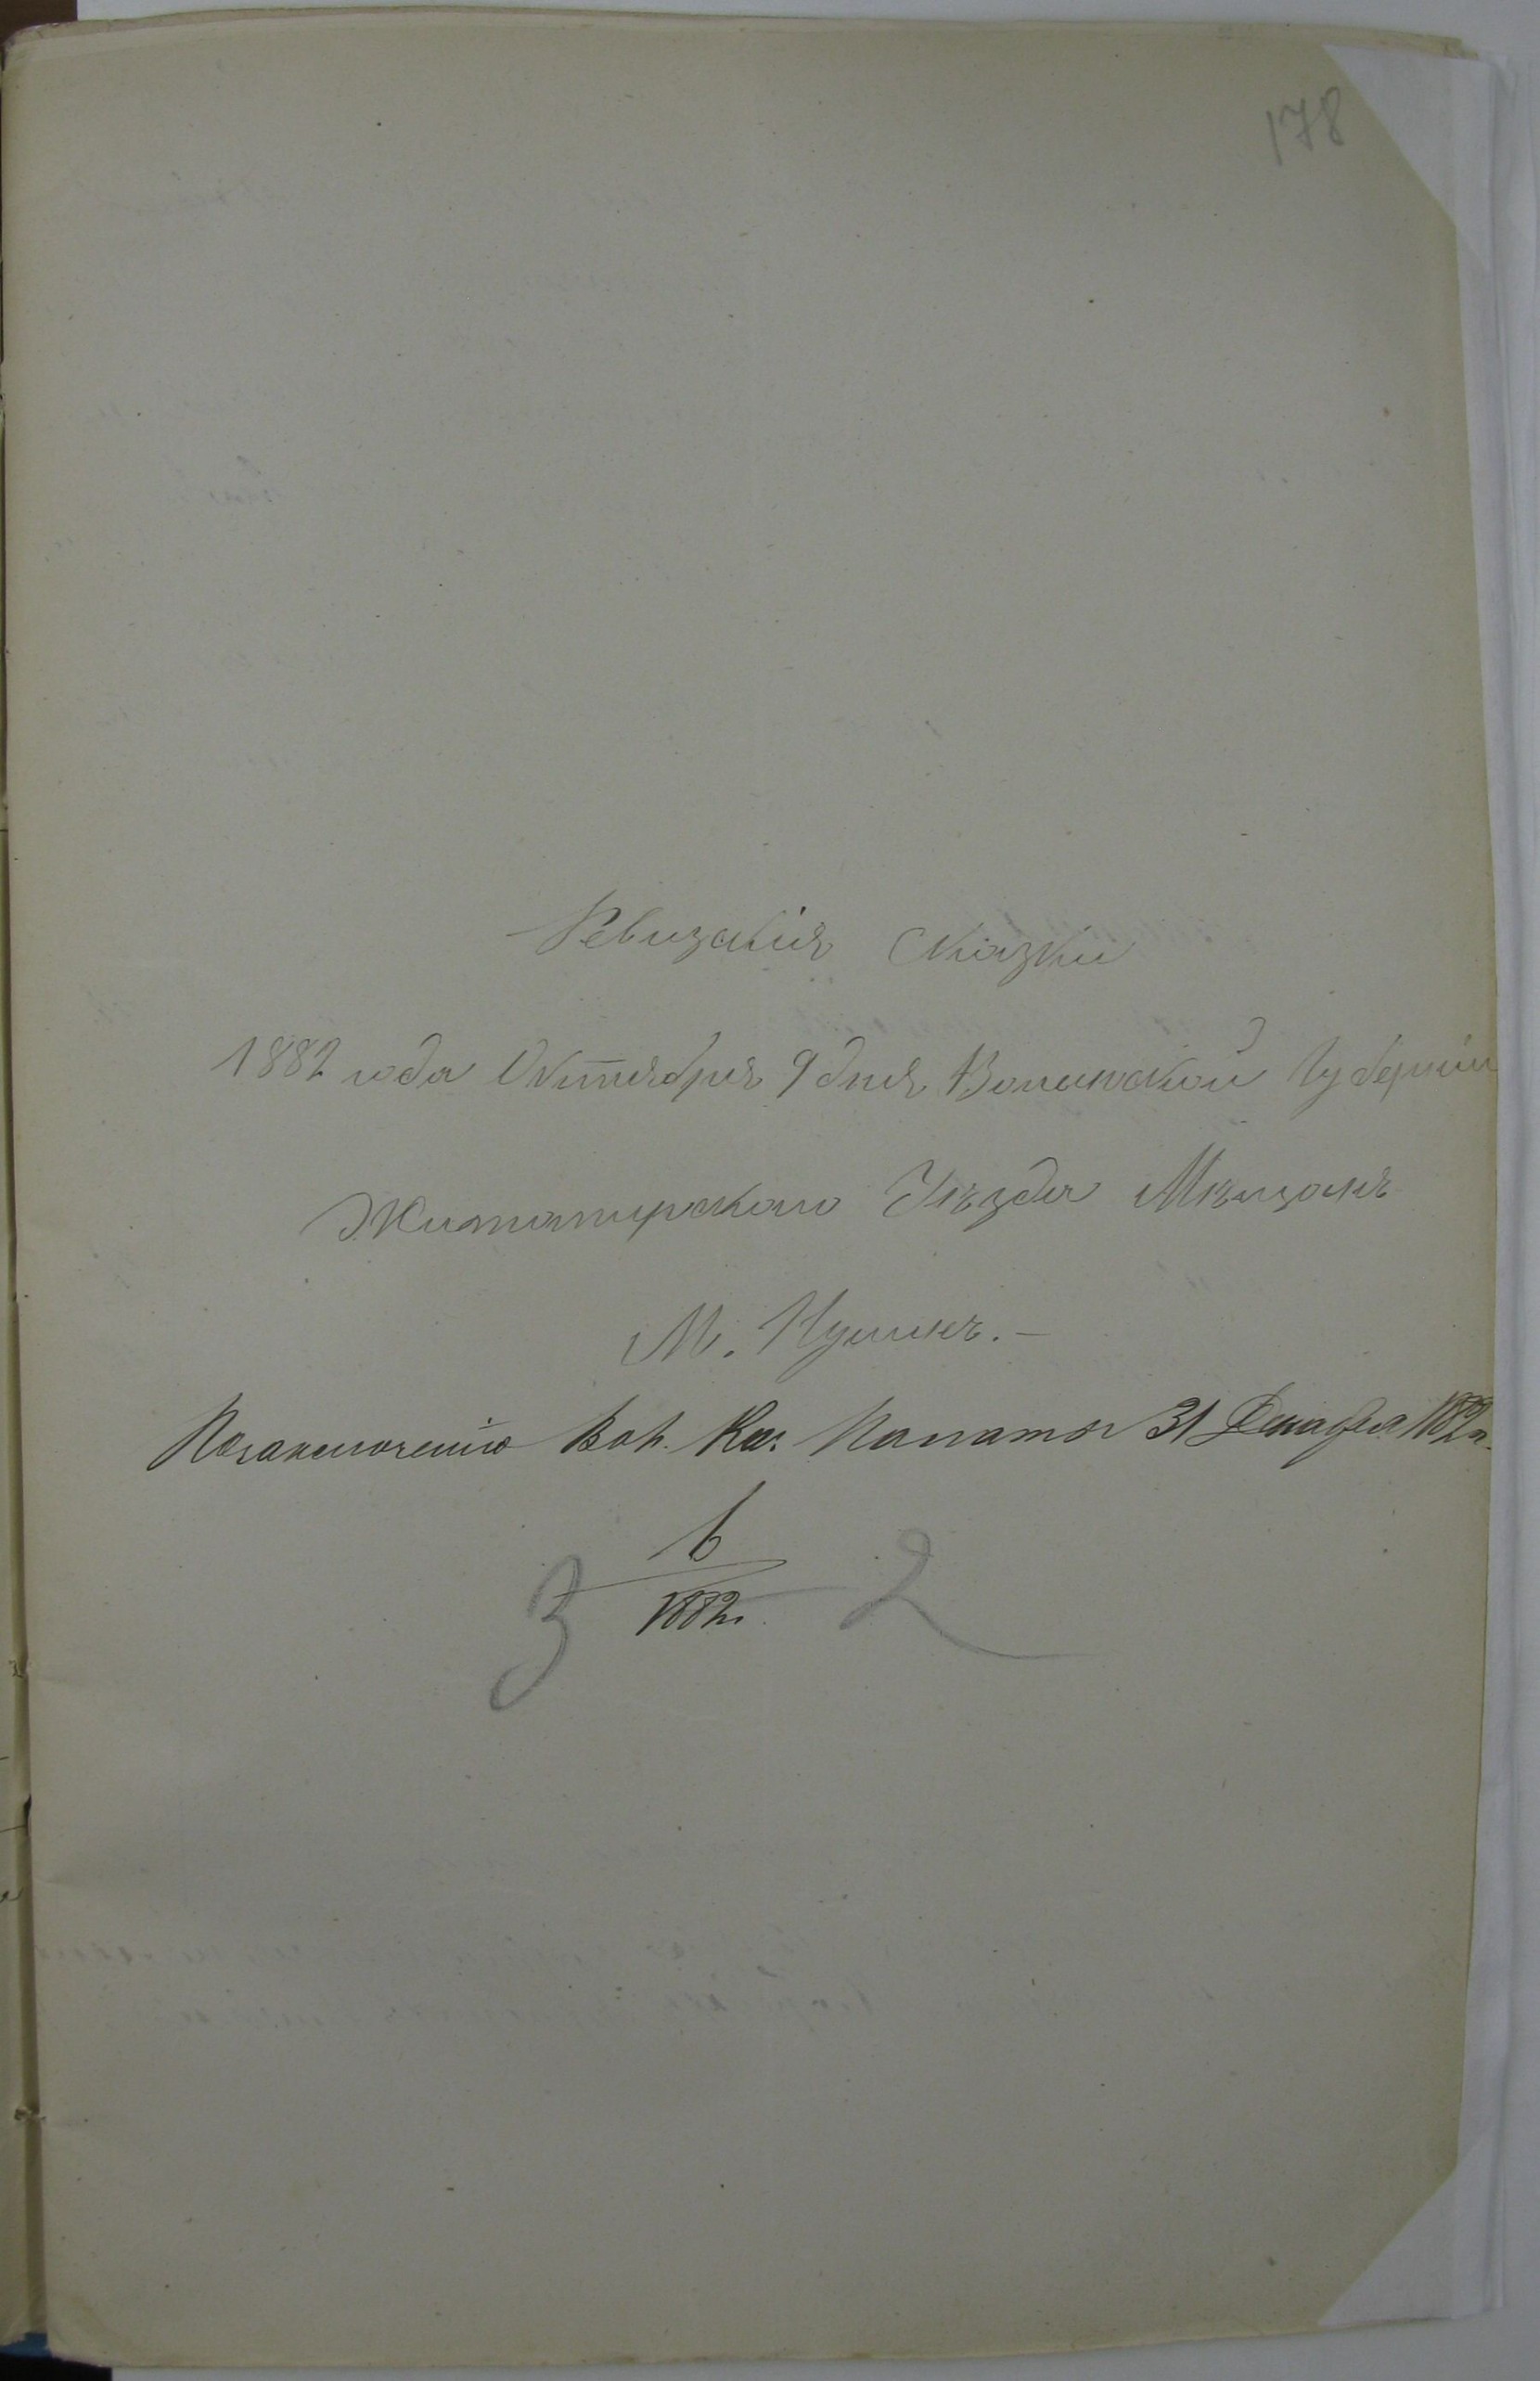 178
Ревизскія Сказки
1882 года Октября 9 дня Волынской Губерніи
Житомирскаго Уѣзда Мѣщанъ
М. Пулинъ. –
По заключенію Вол. Каз. Палаты 31 Декабря 1882 г.
6
1882 г.
3 2